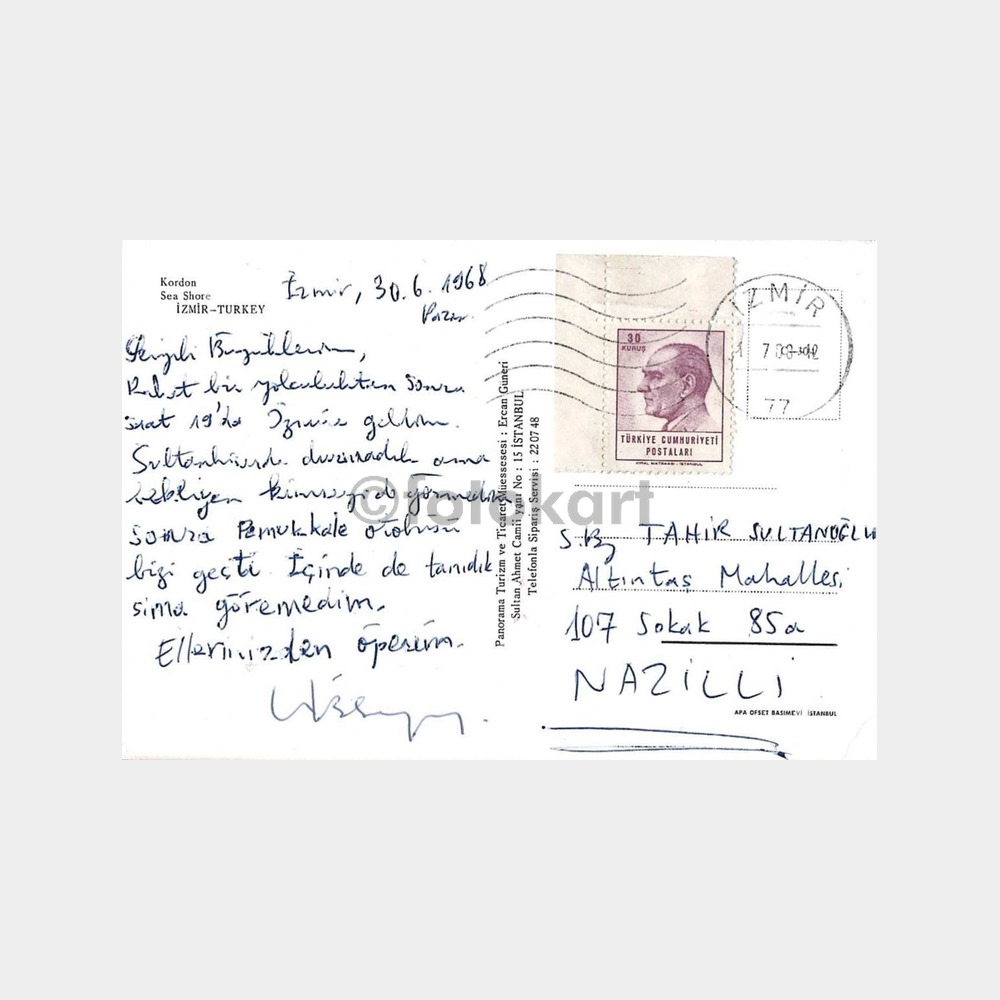 Kordon
Sea Shore
İZMİR-TURKEY
İzmir, 30.6.1968
Pazar
Sevgili Büyüklerim,
Rahat bir yolculuktan sonra
saat 19'da İzmire geldim.
Sultanhisarda durmadık ama
bekliyen kimseyi de görmedim
sonra Pamukkale otobüsü
bizi geçti. İçinde de tanıdık
sima göremedim.
Ellerinizden öperim.
Panorama Turizm ve Ticaret Müessesesi : Ercan Güneri
Sultan Ahmet Camii yanı No : 15 İSTANBUL
Telefonla Sipariş Servisi : 22 07 48
30
KURUŞ
TÜRKİYE CUMHURİYETİ
POSTALARI
İZMİR
77
S. By TAHİR SULTANOĞLU
Altıntaş Mahallesi
107 Sokak 85a
NAZİLLİ
APA OFSET BASIMEVİ İSTANBUL
©fotokart